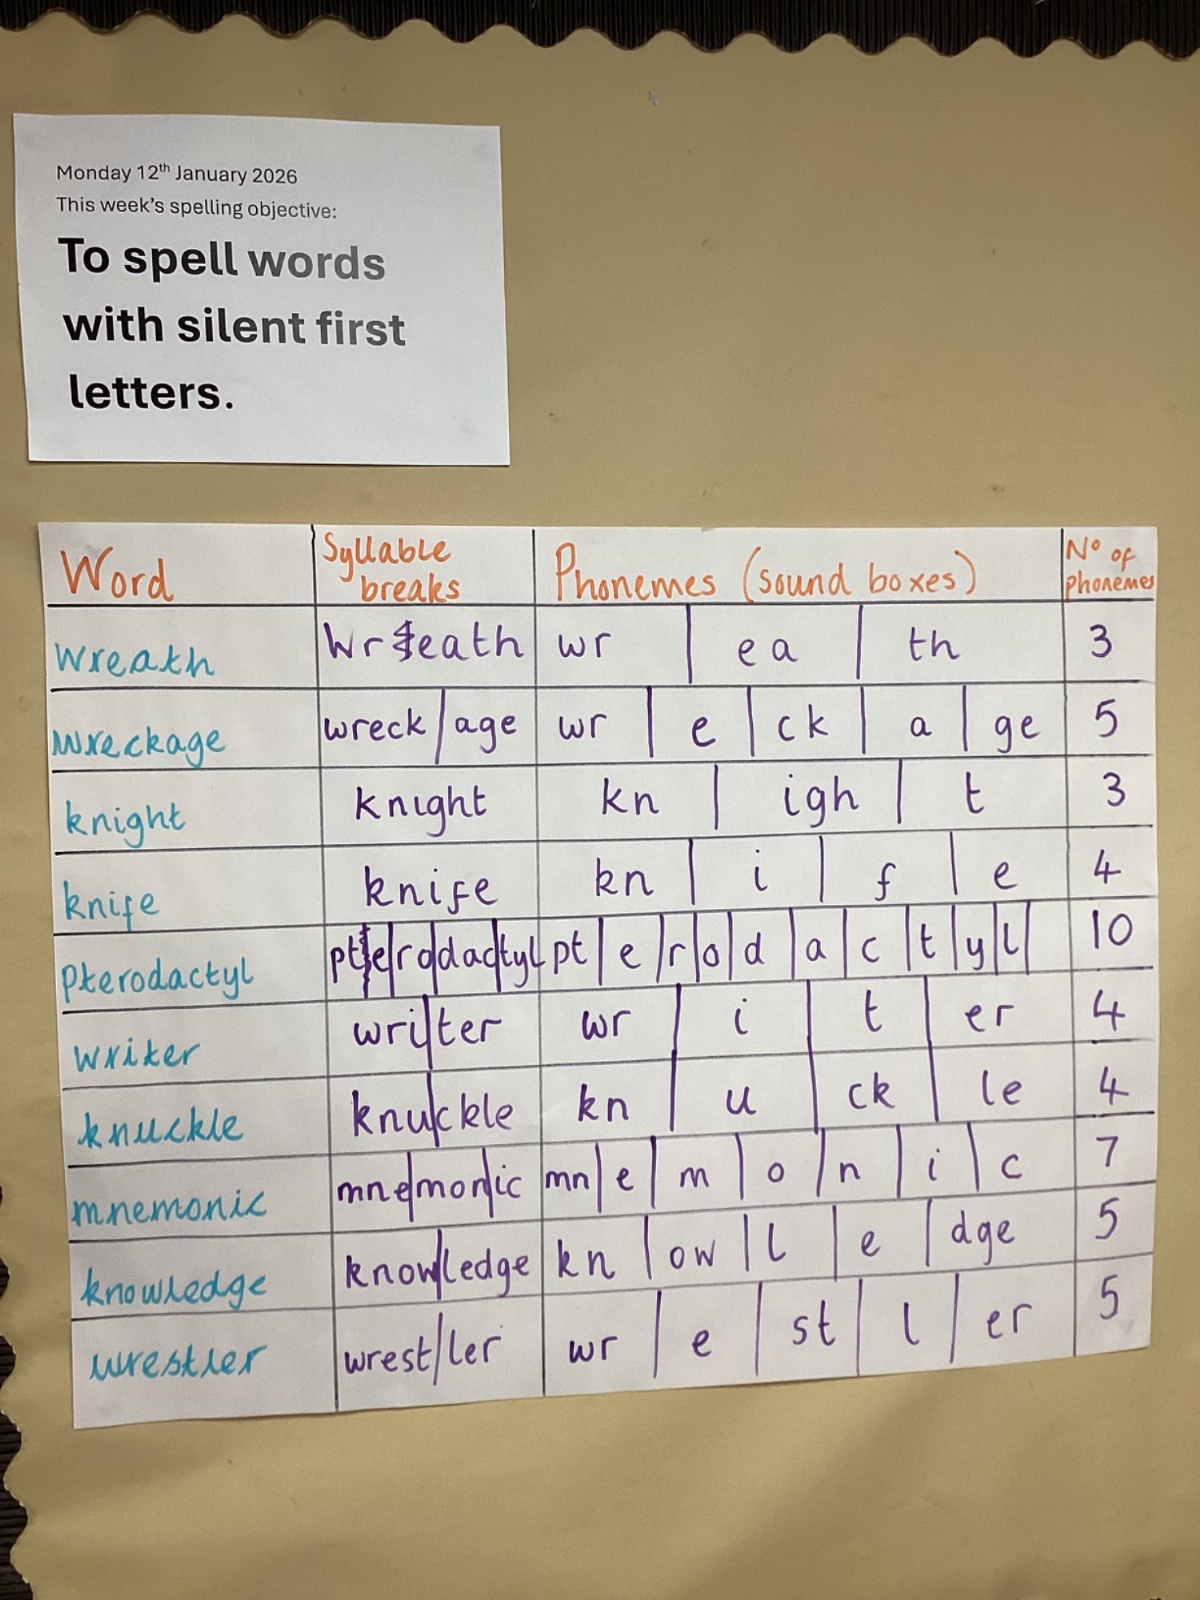 Monday 12th January 2026
This week's spelling objective:
To spell words
with silent first
letters.
Word | Syllable breaks | Phonemes (sound boxes) | No of phonemes
wreath | wreath | wr | ea | th | 3
wreckage | wreck/age | wr | e | ck | a | ge | 5
knight | knight | kn | igh | t | 3
knife | knife | kn | i | f | e | 4
pterodactyl | pte/ro/dac/tyl | pt | e | r | o | d | a | c | t | y | l | 10
writer | wri/ter | wr | i | t | er | 4
knuckle | knu/ckle | kn | u | ck | le | 4
mnemonic | mne/mon/ic | mn | e | m | o | n | i | c | 7
knowledge | know/ledge | kn | ow | l | e | dge | 5
wrestler | wrest/ler | wr | e | st | l | er | 5